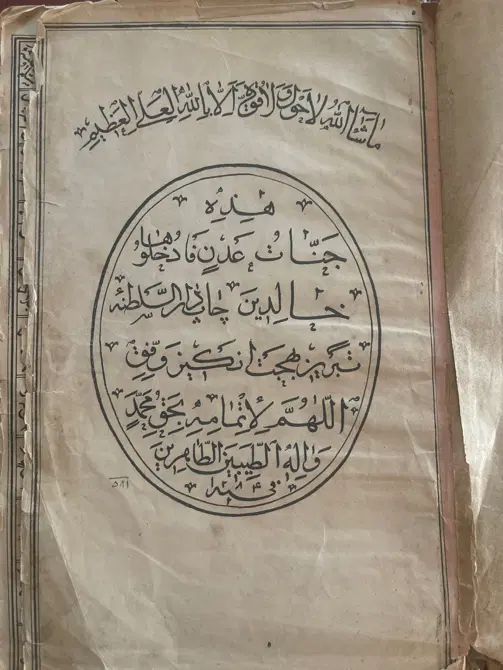 ما شاء الله لا حول ولا قوة الا بالله العلي العظيم
هٰذِه
جَنّاتُ عَدْنٍ فَادْخُلُوها
خالِدين چاپ دار السَّلطنه
تبريز بهجت انگيز وَفِّق
اَللّٰهُمَّ لِاِتْمامِه بِحَقِّ مُحَمَّدٍ
وَالِهِ الطَّيِّبينَ الطّاهِرين